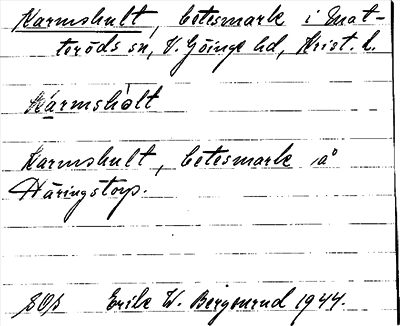 Karmshult, betesmark i Mat-
teröds sn, V. Göinge hd, Krist. l.
Karmshòlt
Karmshult, betesmark på
Häringstorp.
SOÄ Erik W. Bergsund 1944.